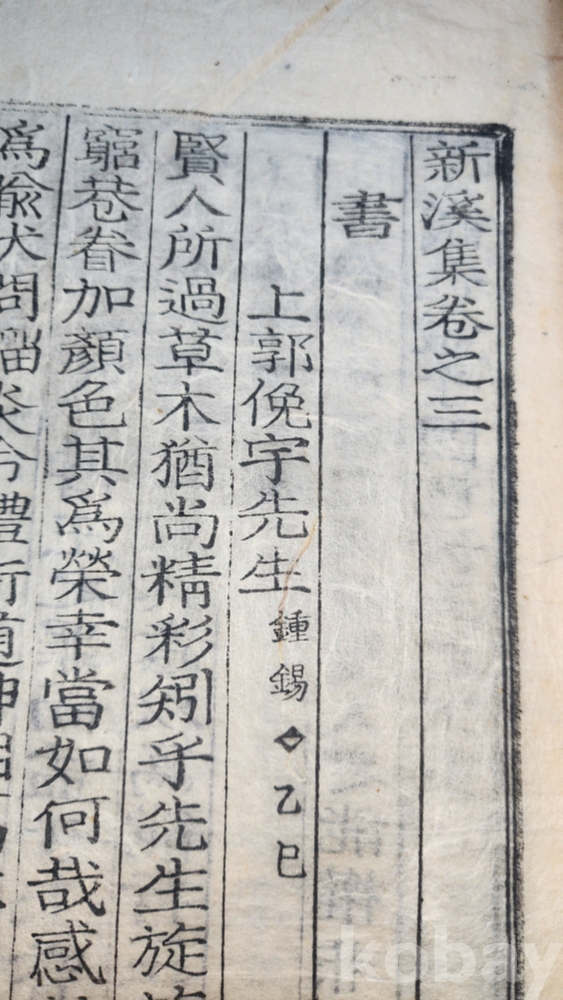 新溪集卷之三
書
上郭俛宇先生 鍾錫 ◆ 乙巳
賢人所過草木猶尚精彩矧乎先生旋
窮巷眷加顏色其爲榮幸當如何哉感
爲
kobay